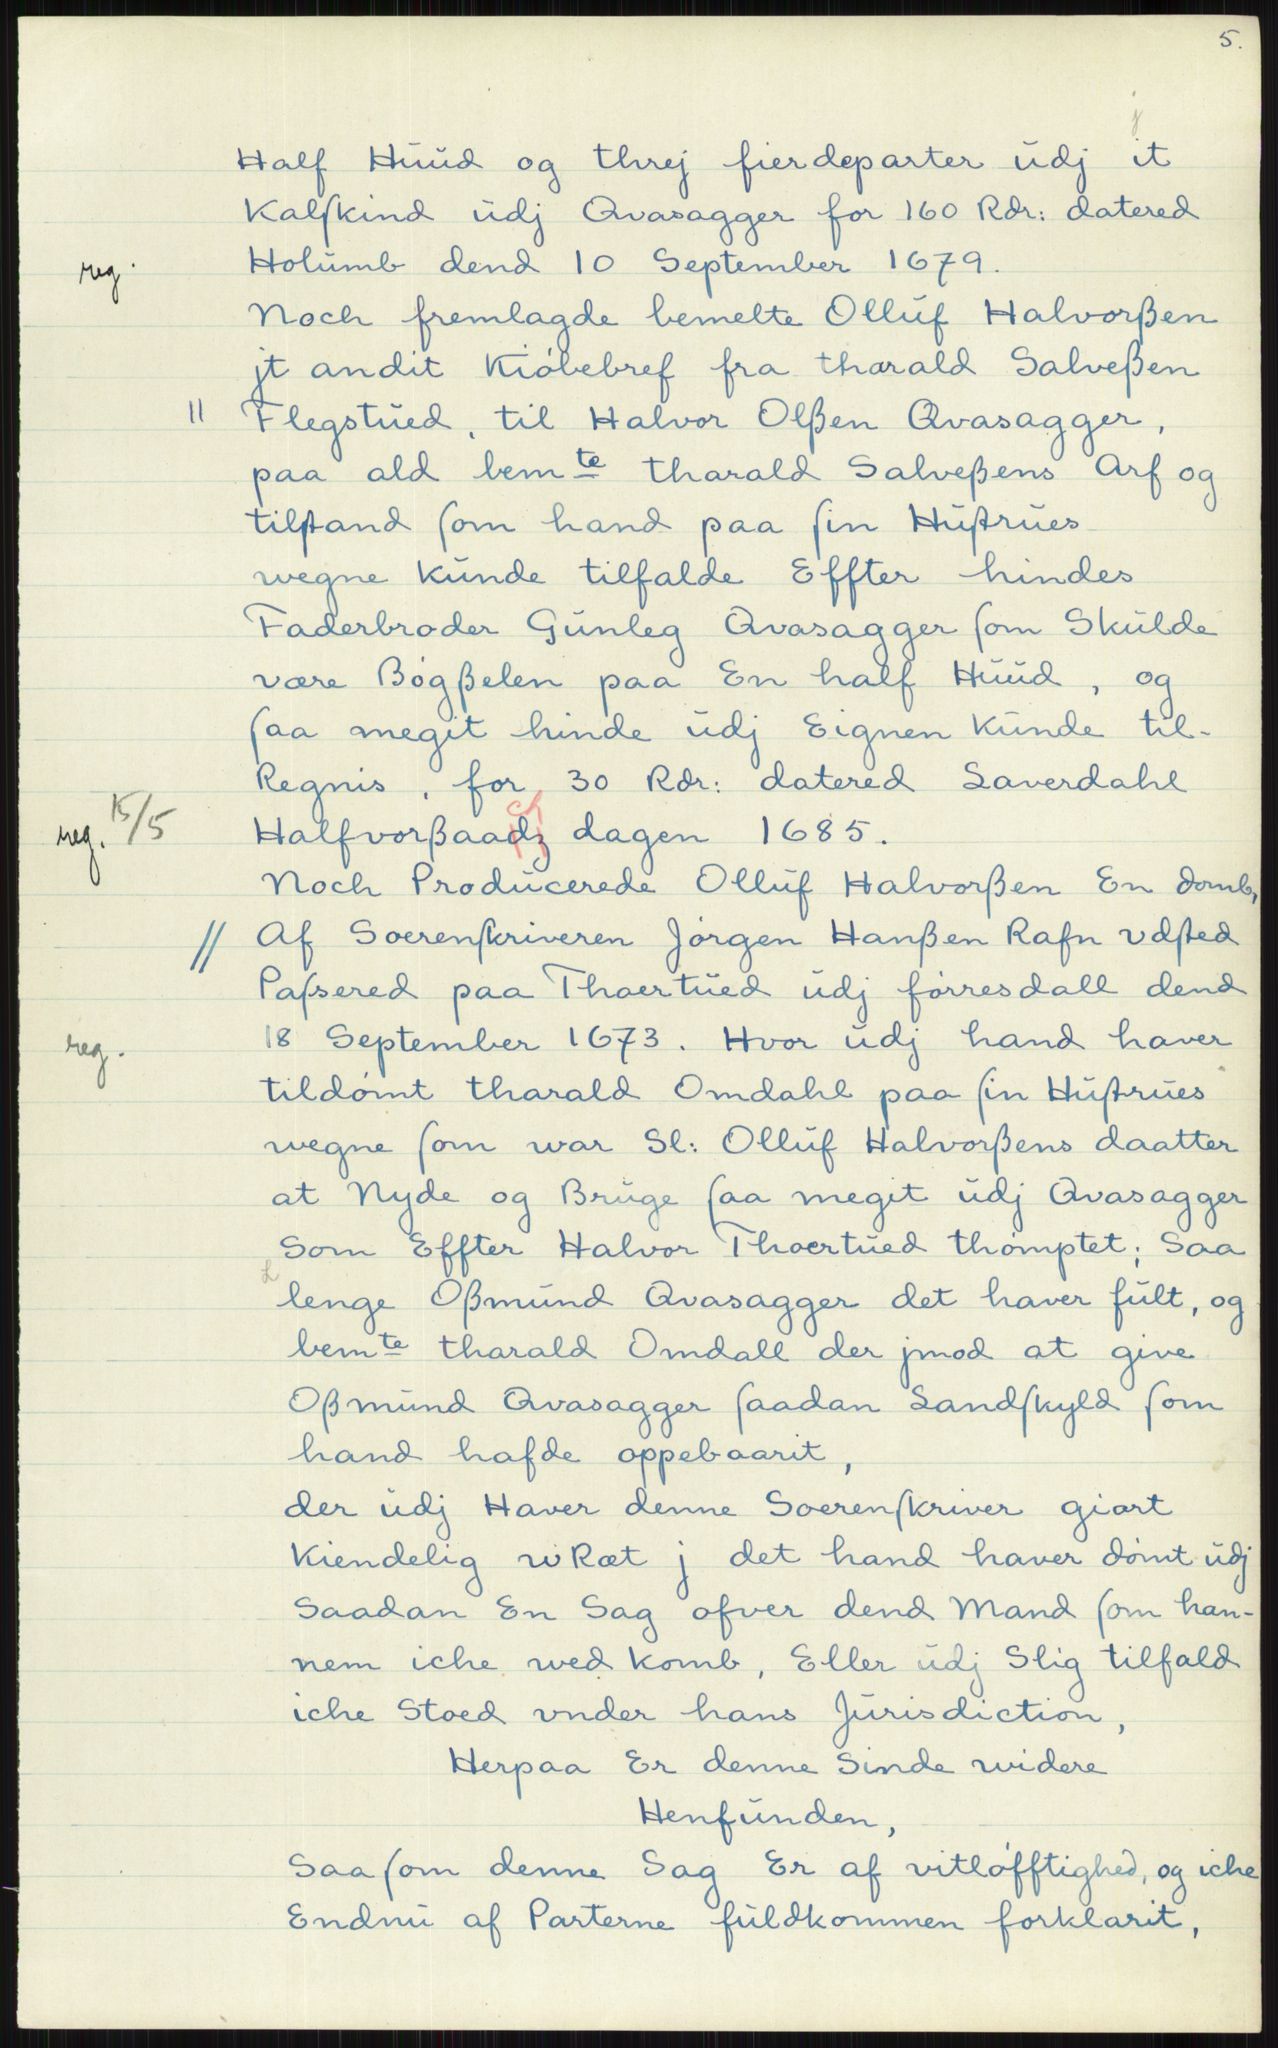 5.
j
Half Huud og threj fierdeparter udj it
Kalſkind udj Qvasagger for 160 Rdr: datered
reg. Holumb dend 10 September 1679.
Noch fremlagde bemelte Olluf Halvorßen
jt andit Kiöbebref fra tharald Salveßen
" Flegstued, til Halvor Olßen Qvasagger,
paa ald bemte tharald Salveßens Arf og
tilſtand ſom hand paa ſin Huſtrues
wegne Kunde tilfalde Effter hindes
Faderbroder Gunleg Qvasagger ſom Skulde
være Bögßelen paa En half Huud, og
ſaa megit hinde udj Eignen Kunde til-
Regnis, for 30 Rdr: datered Laverdahl
reg. 15/5 Halfvorßaadz dagen 1685.
Noch Producerede Olluf Halvorßen En domb,
// Af Soerenſkriveren Jörgen Hanßen Rafn vdſted
Paſsered paa Thoertued udj förresdall dend
reg. 18 September 1673. Hvor udj hand haver
tildömt tharald Omdahl paa ſin Huſtrues
wegne ſom war Sl: Olluf Halvorßens daatter
at Nyde og Bruge ſaa megit udj Qvasagger
Som Effter Halvor Thoertued thömptet; Saa
lenge Oßmund Qvasagger det haver fült, og
bemte tharald Omdall der jmod at give
Oßmund Qvasagger ſaadan Landſkyld ſom
hand hafde oppebaarit,
der udj Haver denne Soerenſkriver giort
Kiendelig wRæt j det hand haver dömt udj
Saadan En Sag ofver dend Mand ſom han-
nem iche wed komb, Eller udj Slig tilfald
iche Stoed vnder hans Jurisdiction,
Herpaa Er denne Sinde widere
Henfunden,
Saa ſom denne Sag Er af vitlöfftighed, og iche
Endnu af Parterne fuldkommen forklarit,